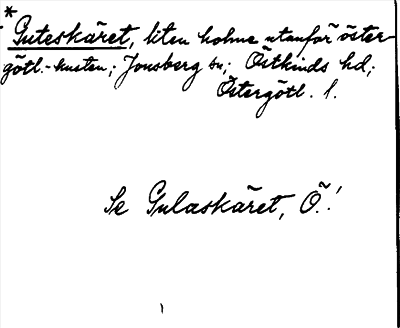 * Guteskäret, liten holme utanför öster-
götl.-kusten; Jonsberg sn; Östkinds hd;
Östergötl. l.
Se Gulaskäret, Ö.!